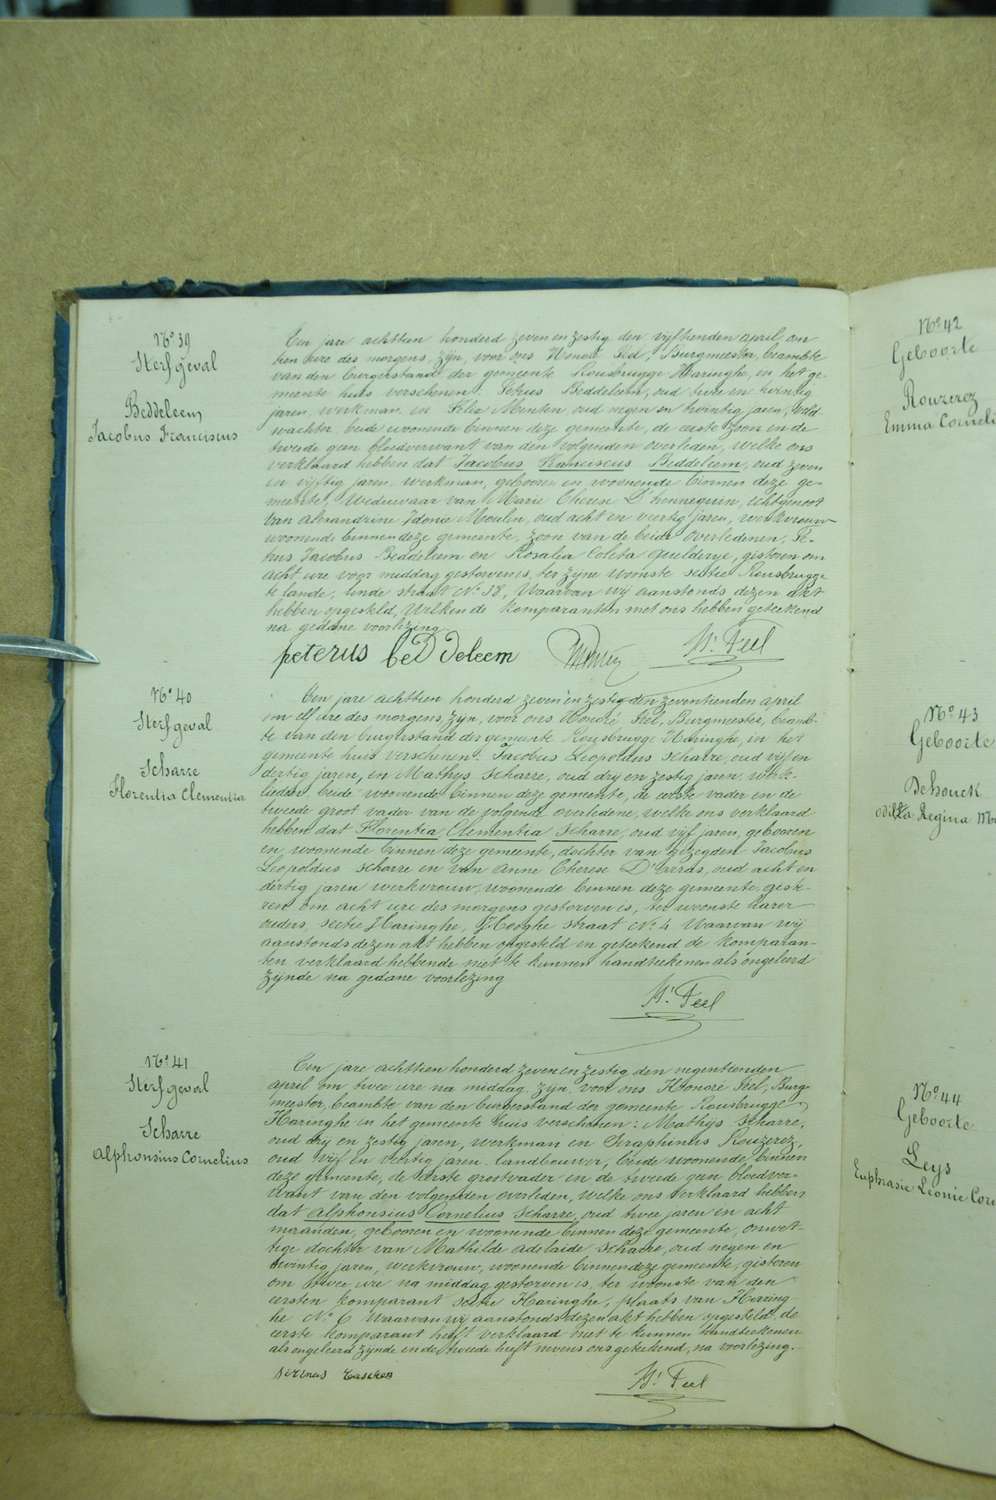 No 39
Sterfgeval
Beddeleem
Jacobus Franciscus
Een jare achttien honderd zeven en zestig den vijftienden april, om
tien ure des morgens, zyn, voor ons Honoré Feel, Burgmeester, beambte
van den burgerstand der gemeente Rousbrugge Haringhe, in het ge-
meente huis verschenen: Petrus Beddeleem, oud twee en twintig
jaren, werkman, en Felix oud negen en twintig jaren, veld
wachter, beide woonende binnen deze gemeente, de eerste zoon en de
tweede geen bloedverwant van den volgenden overleden, welke ons
verklaard hebben dat Jacobus Franciscus Beddeleem, oud zeven
en vijftig jaren, werkman, geboren en woonende binnen deze ge-
meente, Weduwaar van Marie Therese D'hennequin, echtgenoot
van Alexandrine Idonie Moulin, oud acht en veertig jaren, werkvrouw
woonende binnen deze gemeente, zoon van de beide overledenen, Pe-
trus Jacobus Beddeleem en Rosalia Coleta gisteren om
acht ure voor middag gestorven is, ter zyne woonste sectie Rousbrugge
te lande, linde straat No 38, Waarvan wy aanstonds dezen akt
hebben opgesteld, Welken de komparanten met ons hebben geteekend
na gedane voorlezing.
peterus beDdeleem
Hé Feel
No 40
Sterfgeval
Scharre
Florentia Clementia
Een jare achttien honderd zeven en zestig den zeventienden april
om elf ure des morgens, zyn, voor ons Honoré Feel, Burgmeester, beamb-
te van den burgerstand der gemeente Rousbrugge Haringhe, in het
gemeente huis verschenen: Jacobus Leopoldus Scharre, oud vijf en
dertig jaren, en Mathys Scharre, oud dry en zestig jaren, werk-
lieden beide woonende binnen deze gemeente, de eerste vader en de
tweede groot vader van de volgende overledene, welke ons verklaard
hebben dat Florentia Clementia Scharre, oud vijf jaren, geboren
en woonende binnen deze gemeente, dochter van gezegden Jacobus
Leopoldus Scharre en van Anne Therese oud acht en
dertig jaren werkvrouw, woonende binnen deze gemeente, giste-
ren om acht ure des morgens gestorven is, ter woonste harer
ouders, sectie Haringhe, straat No 4 Waarvan wij
aanstonds dezen akt hebben opgesteld en geteekend de komparan-
ten verklaard hebbende niet te kunnen handteekenen als ongeleerd
zijnde na gedane voorlezing
Hé Feel
No 41
Sterfgeval
Scharre
Alphonsius Cornelius
Een jare achttien honderd zeven en zestig den negentienden
april om twee ure na middag zyn, voor ons Honoré Feel, Burg-
meester, beambte van den burgerstand der gemeente Rousbrugge
Haringhe in het gemeente huis verschenen: Mathys Scharre,
oud dry en zestig jaren, werkman en Seraphinus Rouzerez,
oud vijf en veertig jaren landbouwer, beide woonende binnen
deze gemeente, de eerste grootvader en de tweede geen bloedver-
want van den volgenden overleden, welke ons verklaard hebben
dat Alphonsius Cornelius Scharre, oud twee jaren en acht
maanden, geboren en woonende binnen deze gemeente, onwet-
tige dochter van Mathilde Adelaide Scharre, oud negen en
twintig jaren, werkvrouw, woonende binnen deze gemeente, gisteren
om twee ure na middag gestorven is, ter woonste van den
eersten komparant sectie Haringhe, plaats van Haring-
he No 6 Waarvan wij aanstonds dezen akt hebben opgesteld, de
eerste komparant heeft verklaard niet te kunnen handteekenen
als ongeleerd zynde en de tweede heeft nevens ons geteekend, na voorlezing.
Hé Feel
No 42
Geboorte
Rouzerez
Emma Corneli
No 43
Geboorte
Dehouck
Regina
No 44
Geboorte
Leys
Euphrasie Léonie Cor